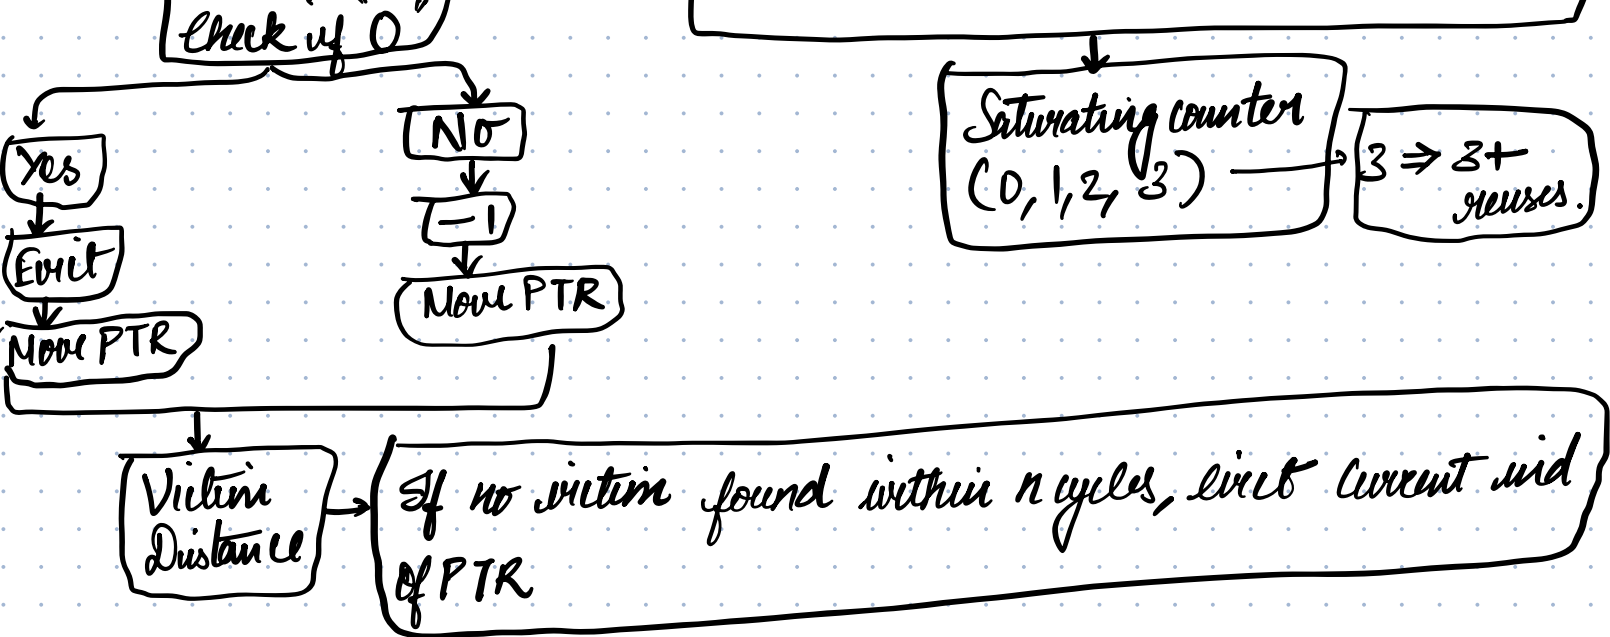 Check if 0
Yes
Evict
Move PTR
No
-1
Move PTR
Saturating counter
(0, 1, 2, 3)
3 ⇒ 3+
reuses.
Victim
Distance
If no victim found within n cycles, evict current ind
of PTR